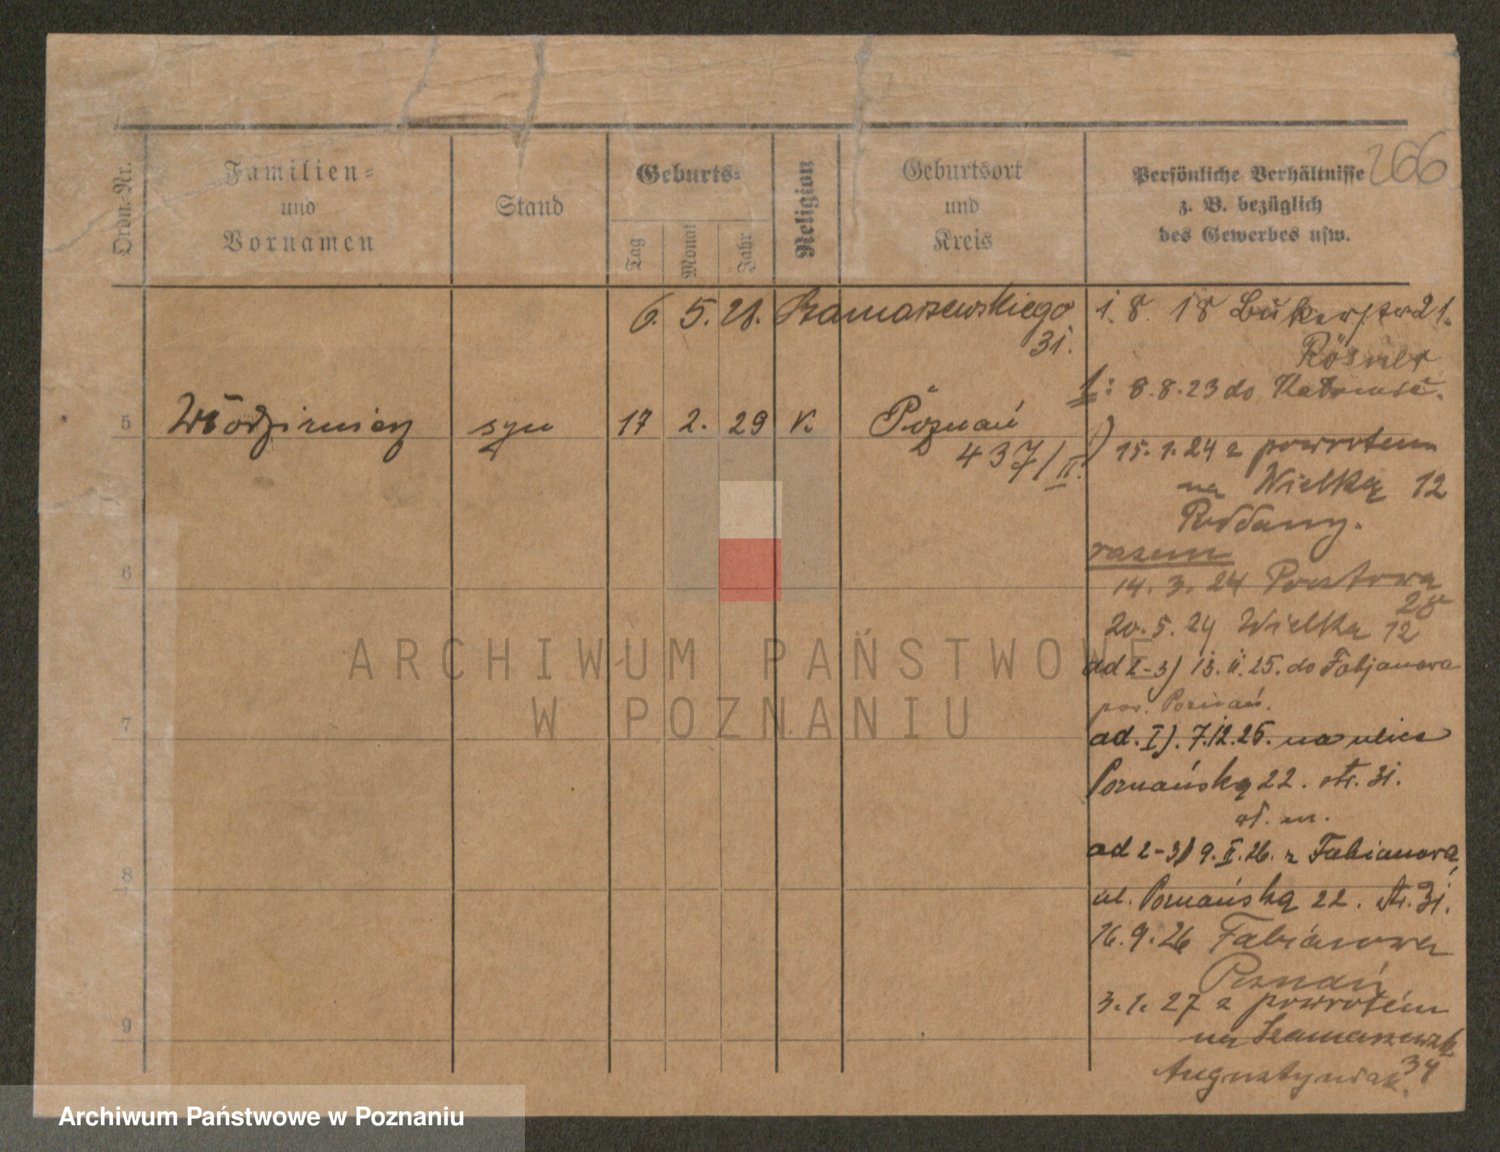 266
Ordn.-Nr.
Familien-
und
Vornamen
Stand
Geburts-
Tag
Monat
Jahr
Religion
Geburtsort
und
Kreis
Persönliche Verhältnisse
z. B. bezüglich
des Gewerbes usw.
6. 5. 28. Szamarzewskiego
31.
1. 8. 18 Bukerstr 21.
8.8.23 do
5 Włodzimierz syn 17 2. 29 K. Poznań
437/II.
15.1.24 z powrotem
na Wielką 12
razem
6
14. 3. 24 Pocztowa
28
20. 5. 24 Wielka 12
ad 2-3) 13. II. 25. do Fabjanowa
pow. Poznań.
7
ad. I). 7.12.25. na ulice
Poznańską 22. str. 31.
ad 2-3) 9. II. 26. z Fabianowa,
8
ul. Poznańską 22. str. 31.
16. 9. 26 Fabianowa
Poznań
3. 1. 27 z powrotem
9
na Szamarzewsk
34
Augustyniak.
ARCHIWUM PAŃSTWOWE
W POZNANIU
Archiwum Państwowe w Poznaniu